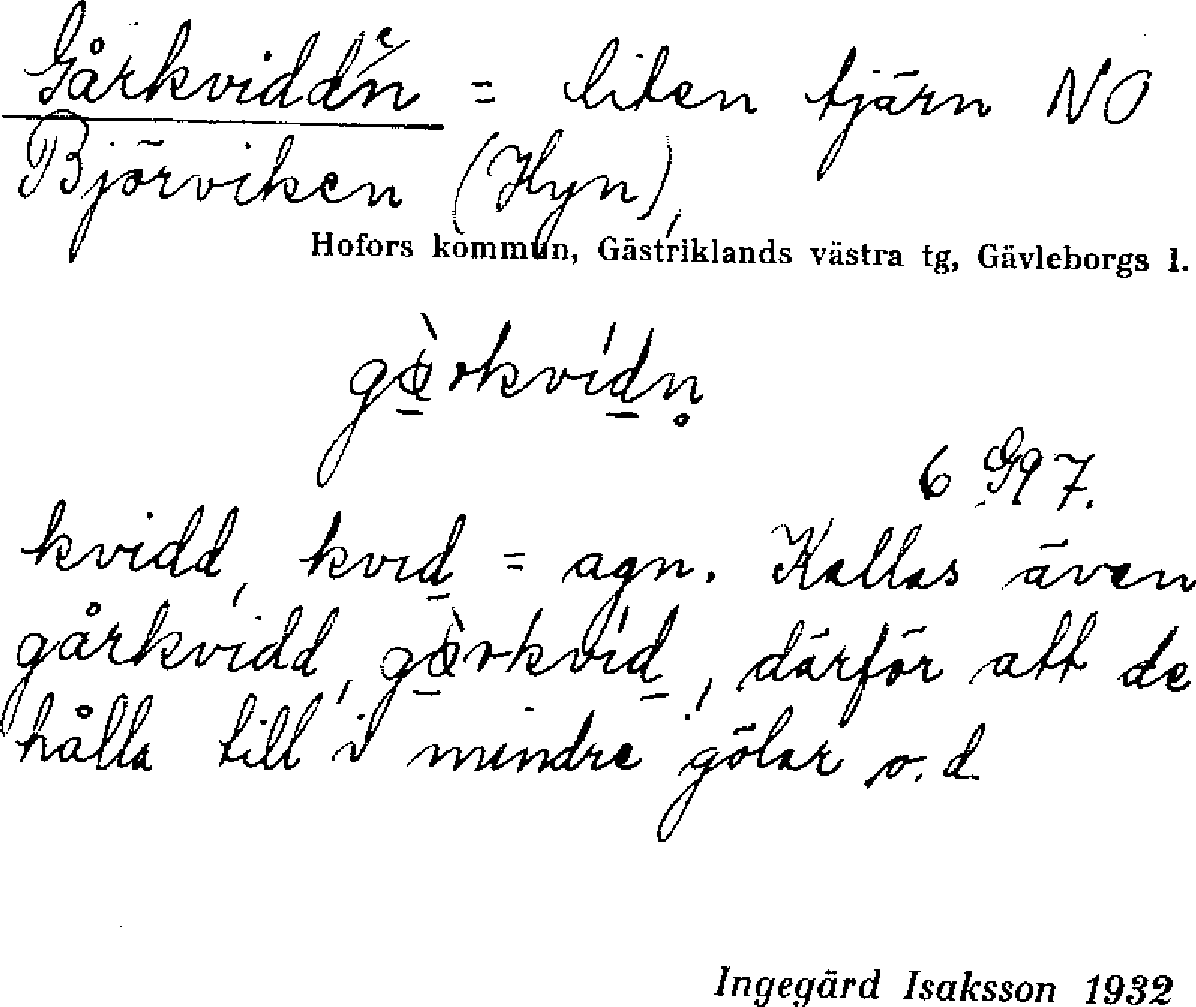 Gårkvidden = liten tjärn NO
Björviken (Hyn),
Hofors kommun, Gästriklands västra tg, Gävleborgs l.
gɵ̀rkvídn̥
6 G 97.
kvidd, kvɪd = agn. Kallas även
gårkvidd, gɵ̀rkvíd, därför att de
hålla till i mindre gölar o. d.
Ingegärd Isaksson 1932